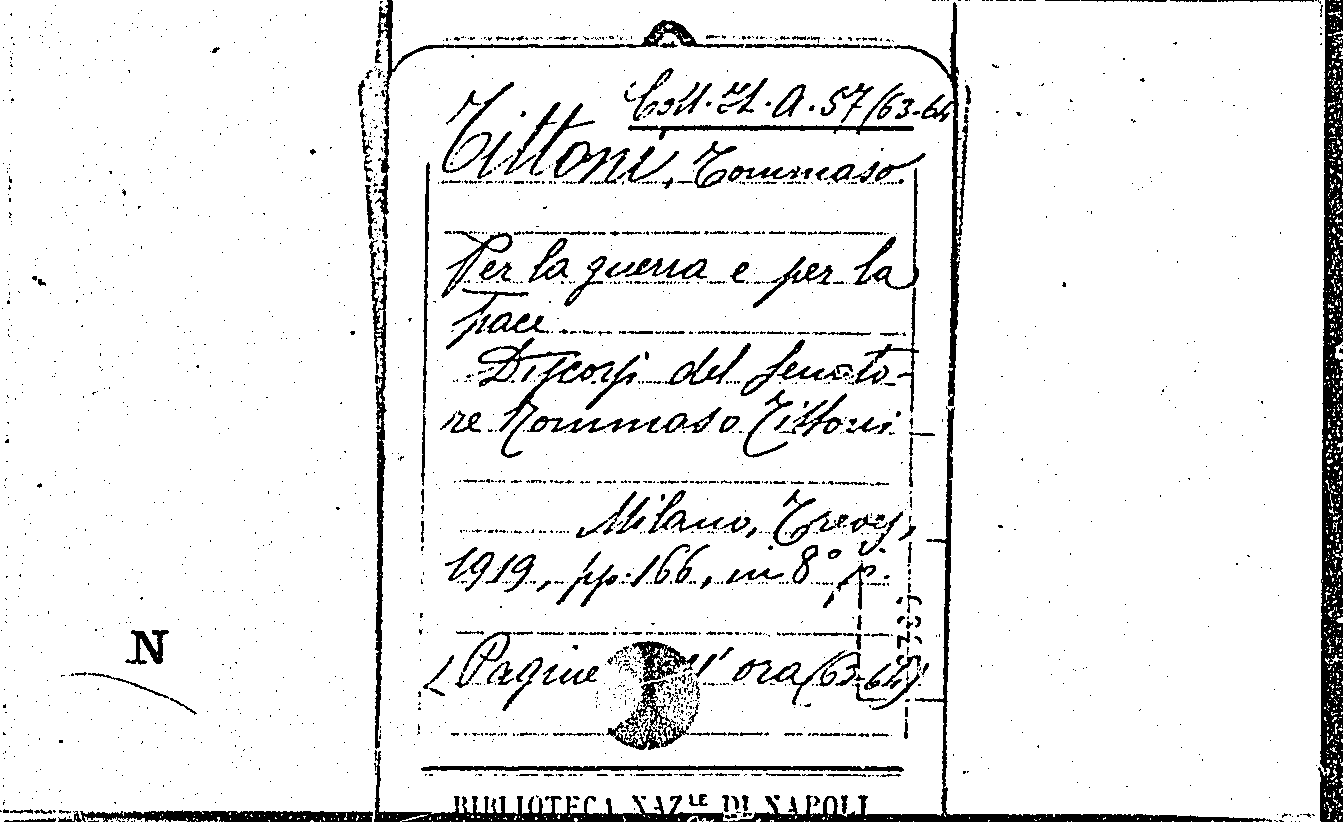 Coll. It. A. 57/(63-64
Tittoni, Tommaso.
Per la guerra e per la
pace
Discorsi del senato-
re Tommaso Tittoni
Milano, Treves,
1919, pp. 166, in 8° p.
(Pagine ll' ora (63-64)
N
BIBLIOTECA NAZLE DI NAPOLI